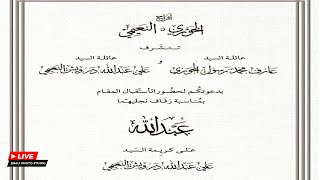 أفراح
الحوزي و النعيمي
تتشرف
عائلة السيد
عارف محمد رسول الحوزي
و
عائلة السيد
علي عبدالله درويش النعيمي
بدعوتكم لحضور الأستقبال المقام
بمناسبة زفاف نجليهما
عبدالله
على كريمة السيد
علي عبدالله درويش النعيمي
LIVE